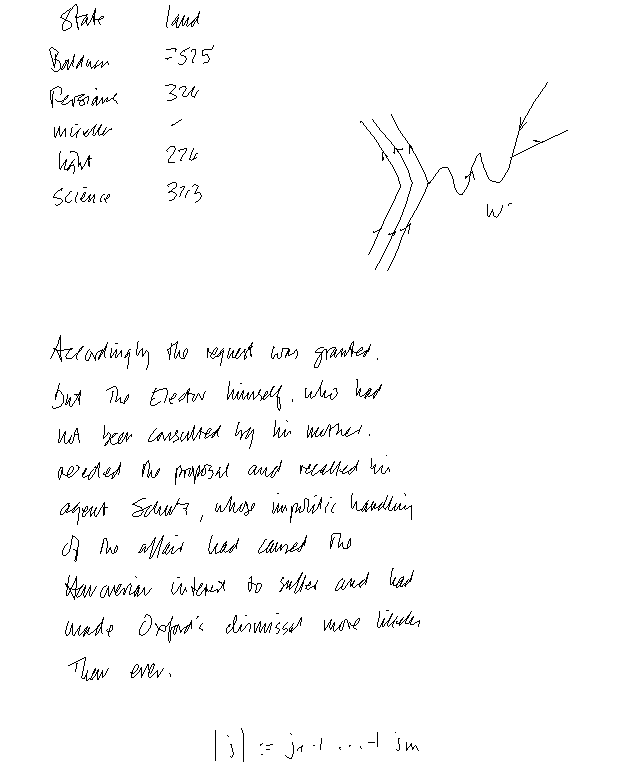 State land
Baldwin 7525
Persians 324
-
light 274
Science 3723
W-
Accordingly the request was granted.
but the Elector himself, who had
not been consulted by his mother,
the proposal and recalled his
agent Schutz, whose impolitic handling
of the affair had caused the
Hanoverian interest to suffer and had
made Oxford's dismissal more
than ever.
|j| := j1 + ... + jm